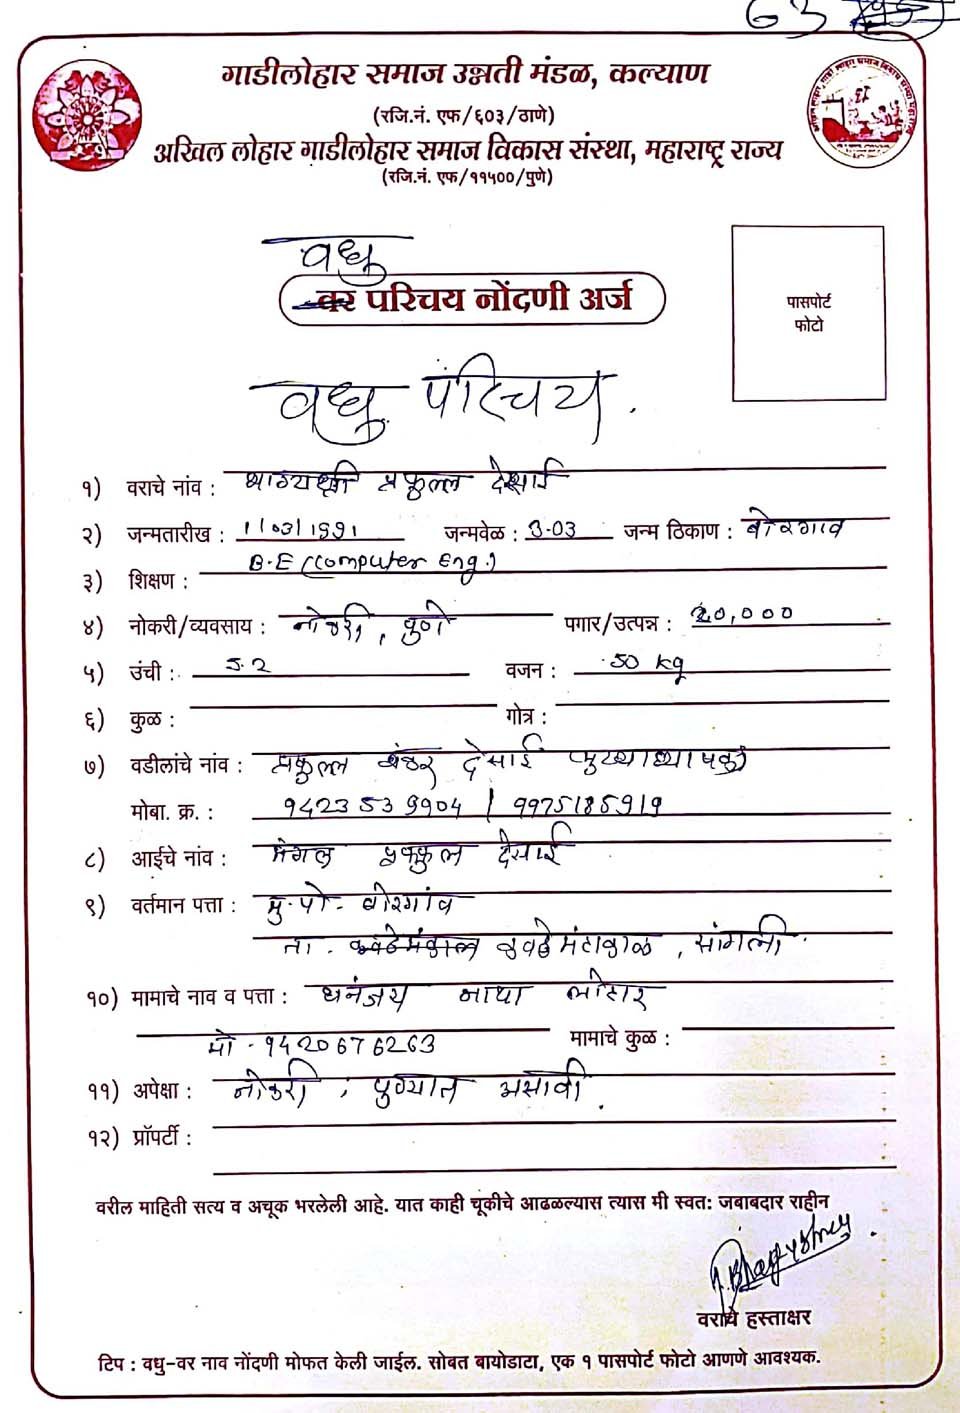 63
गाडीलोहार समाज उन्नती मंडळ, कल्याण
(रजि.नं. एफ/६०३/ठाणे)
अखिल लोहार गाडीलोहार समाज विकास संस्था, महाराष्ट्र राज्य
(रजि.नं. एफ/११५००/पुणे)
वधु
वर परिचय नोंदणी अर्ज
पासपोर्ट
फोटो
वधु परिचय.
१) वराचे नांव : भाग्यश्री प्रफुल्ल देसाई
२) जन्मतारीख : 11/03/1991 जन्मवेळ : 3.03 जन्म ठिकाण : बोरगाव
३) शिक्षण : B.E (Computer Eng.)
४) नोकरी/व्यवसाय : नोकरी, पुणे पगार/उत्पन्न : 20,000
५) उंची : 5.2 वजन : 50 kg
६) कुळ : गोत्र :
७) वडीलांचे नांव : प्रफुल्ल शंकर देसाई मुख्याध्यापक
मोबा. क्र. : 9423539904 / 9975185919
८) आईचे नांव : मंगल प्रफुल्ल देसाई
९) वर्तमान पत्ता : मु.पो - बोरगांव
ता. कवठेमंकाल कवठेमंटाकाळ, सांगली.
१०) मामाचे नाव व पत्ता : धनंजय लोहार
मो - 9420676263 मामाचे कुळ :
११) अपेक्षा : नोकरी, पुण्यात असावी.
१२) प्रॉपर्टी :
वरील माहिती सत्य व अचूक भरलेली आहे. यात काही चूकीचे आढळल्यास त्यास मी स्वत: जबाबदार राहीन
वराचे हस्ताक्षर
टिप : वधु-वर नाव नोंदणी मोफत केली जाईल. सोबत बायोडाटा, एक १ पासपोर्ट फोटो आणणे आवश्यक.